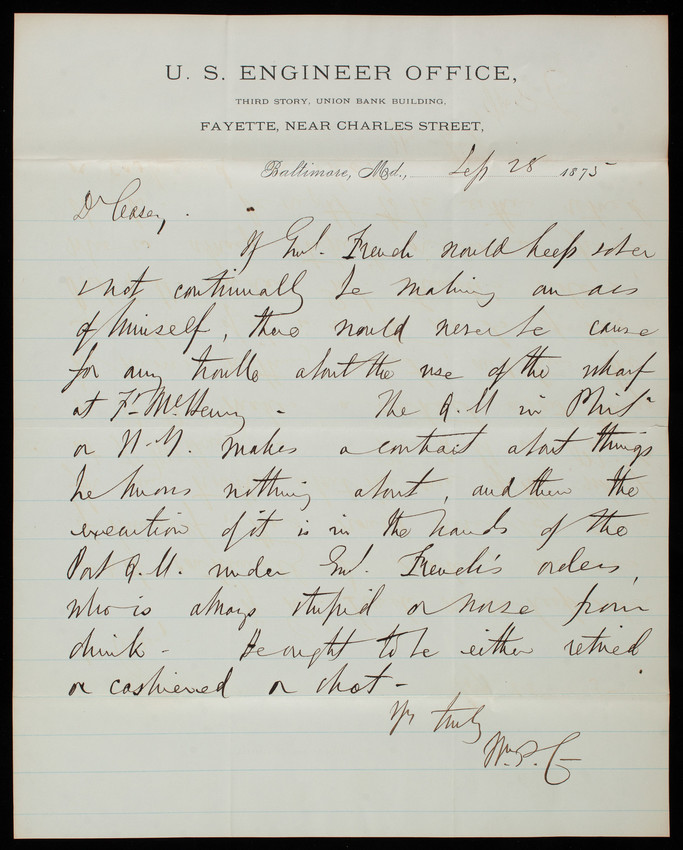 U. S. ENGINEER OFFICE,
THIRD STORY, UNION BANK BUILDING,
FAYETTE, NEAR CHARLES STREET,
Baltimore, Md., Sep 28 1875
Dr Casey,
If Genl. French would keep sober
& not continually be making an ass
of himself, there would never be cause
for any trouble about the use of the wharf
at Ft McHenry - The Q.M in Phila
or N.Y. makes a contract about things
he knows nothing about, and then the
execution of it is in the hands of the
Post Q.M. under Genl. French's orders,
who is always stupid or worse from
drink - He ought to be either retired
or cashiered or shot -
Yrs truly
Wm. P. C